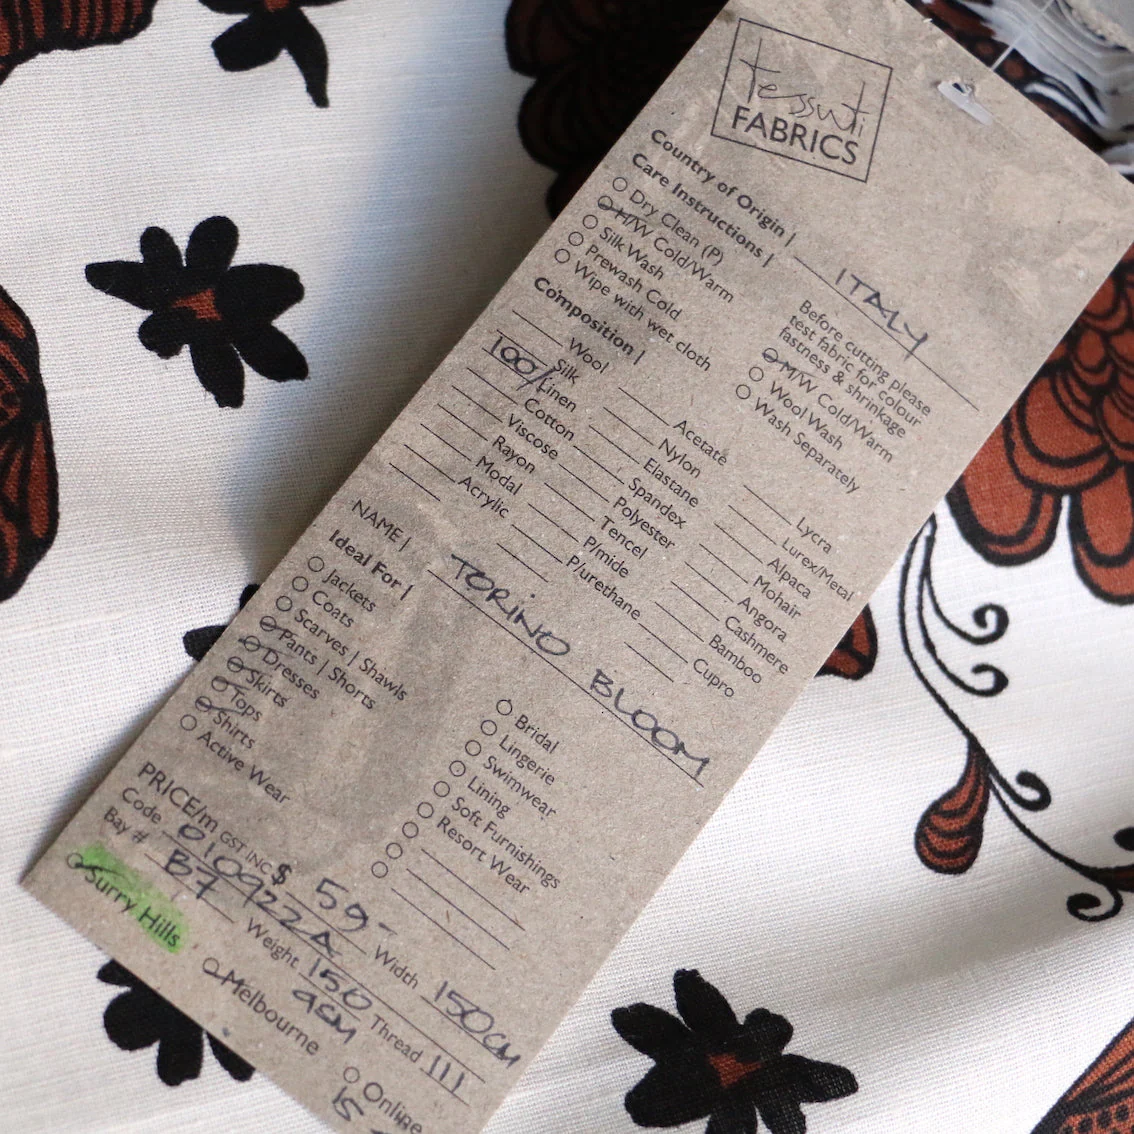 tessuti
FABRICS
Country of Origin | ITALY
Care Instructions |
Dry Clean (P)
H/W Cold/Warm
Silk Wash
Prewash Cold
Wipe with wet cloth
Before cutting please
test fabric for colour
fastness & shrinkage
M/W Cold/Warm
Wool Wash
Wash Separately
Composition |
Wool
Silk
100/ Linen
Cotton
Viscose
Rayon
Modal
Acrylic
Acetate
Nylon
Elastane
Spandex
Polyester
Tencel
P/mide
P/urethane
Lycra
Lurex/Metal
Alpaca
Mohair
Angora
Cashmere
Bamboo
Cupro
NAME | TORINO BLOOM
Ideal For |
Jackets
Coats
Scarves | Shawls
Pants | Shorts
Dresses
Skirts
Tops
Shirts
Active Wear
Bridal
Lingerie
Swimwear
Lining
Soft Furnishings
Resort Wear
PRICE/m GST INC $ 59- Width 150cm
Code 010922A Weight 150 gsm Thread 111
Bay # B7
Surry Hills
Melbourne
Online
15